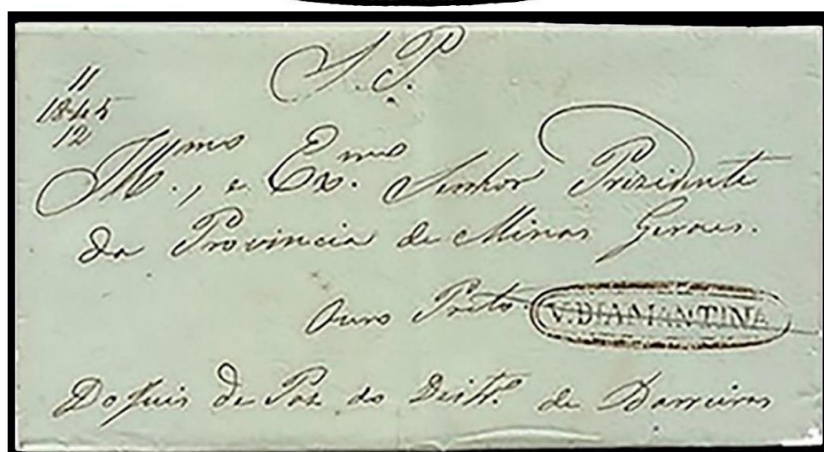 S. P.
11
1845
12
Ill.mo, e Ex.mo Senhor Prezidente
da Provincia de Minas Geraes.
Ouro Preto. V. DIAMANTINA
Do Juis de Paz do Distr.o de Barreiras